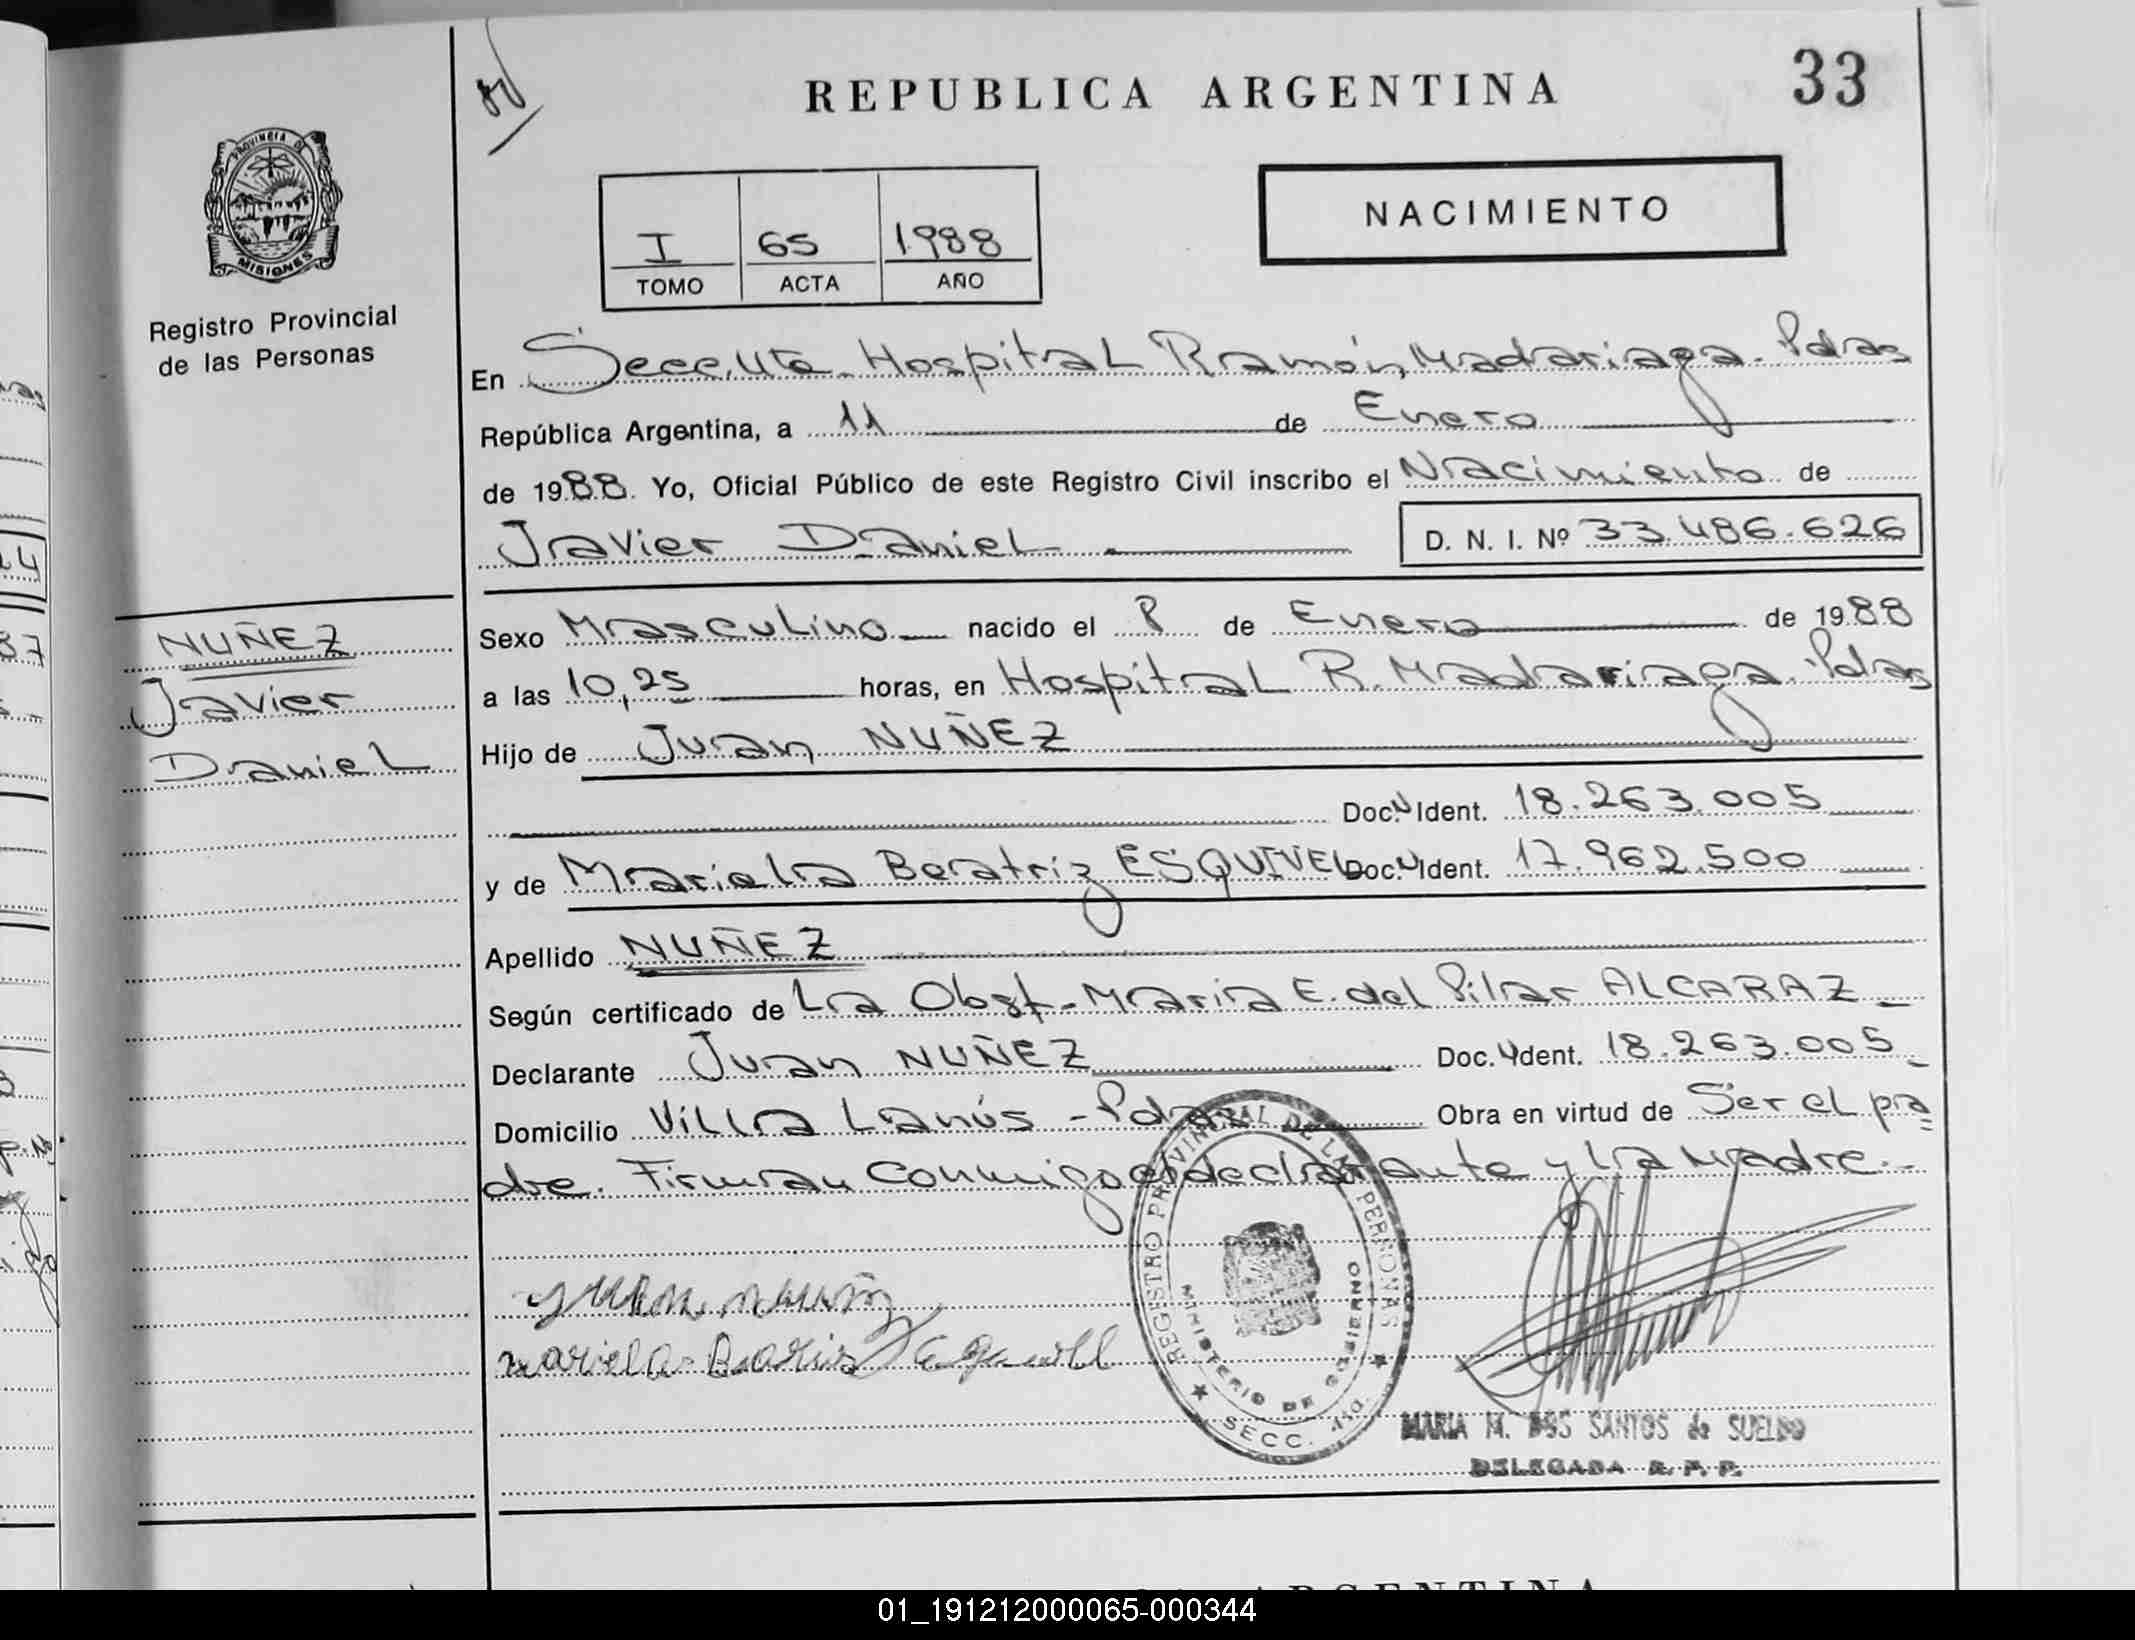 33
REPUBLICA ARGENTINA
NACIMIENTO
I 65 1988
TOMO ACTA AÑO
PROVINCIA DE
MISIONES
Registro Provincial
de las Personas
En Secc. 4ta. Hospital Ramón Madariaga. Pdas
República Argentina, a 11 de Enero
de 1988. Yo, Oficial Público de este Registro Civil inscribo el Nacimiento de
Javier Daniel D. N. I. Nº 33.486.626
NUÑEZ
Javier
Daniel
Sexo Masculino nacido el 8 de Enero de 1988
a las 10,25 horas, en Hospital R. Madariaga. Pdas
Hijo de Juan NUÑEZ
Doc. N Ident. 18.263.005
y de Mariela Beatriz ESQUIVEL Doc. N Ident. 17.962.500
Apellido NUÑEZ
Según certificado de La Obst. María E. del Pilar ALCARAZ
Declarante Juan NUÑEZ Doc. Ident. 18.263.005
Domicilio Villa Lanús - Pdas Obra en virtud de Ser el pa
dre. Firman conmigo el declarante y la madre.-
REGISTRO PROVINCIAL DE LAS PERSONAS
MINISTERIO DE GOBIERNO
SECC. 4ta.
Juan
mariela
MARIA M. DOS SANTOS de SUELDO
DELEGADA R. P. P.
ARGENTINA
01_191212000065-000344